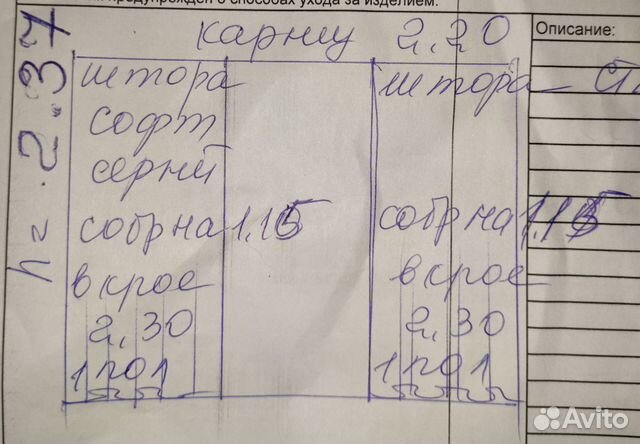 предупрежден о способах ухода за изделием.
Описание:
карниз 2.20
h = 2.37
штора
софт
серый
собр на 1.15
в крое
2,30
1 по 1
штора
собр на 1.15
в крое
2,30
1 по 1
Avito